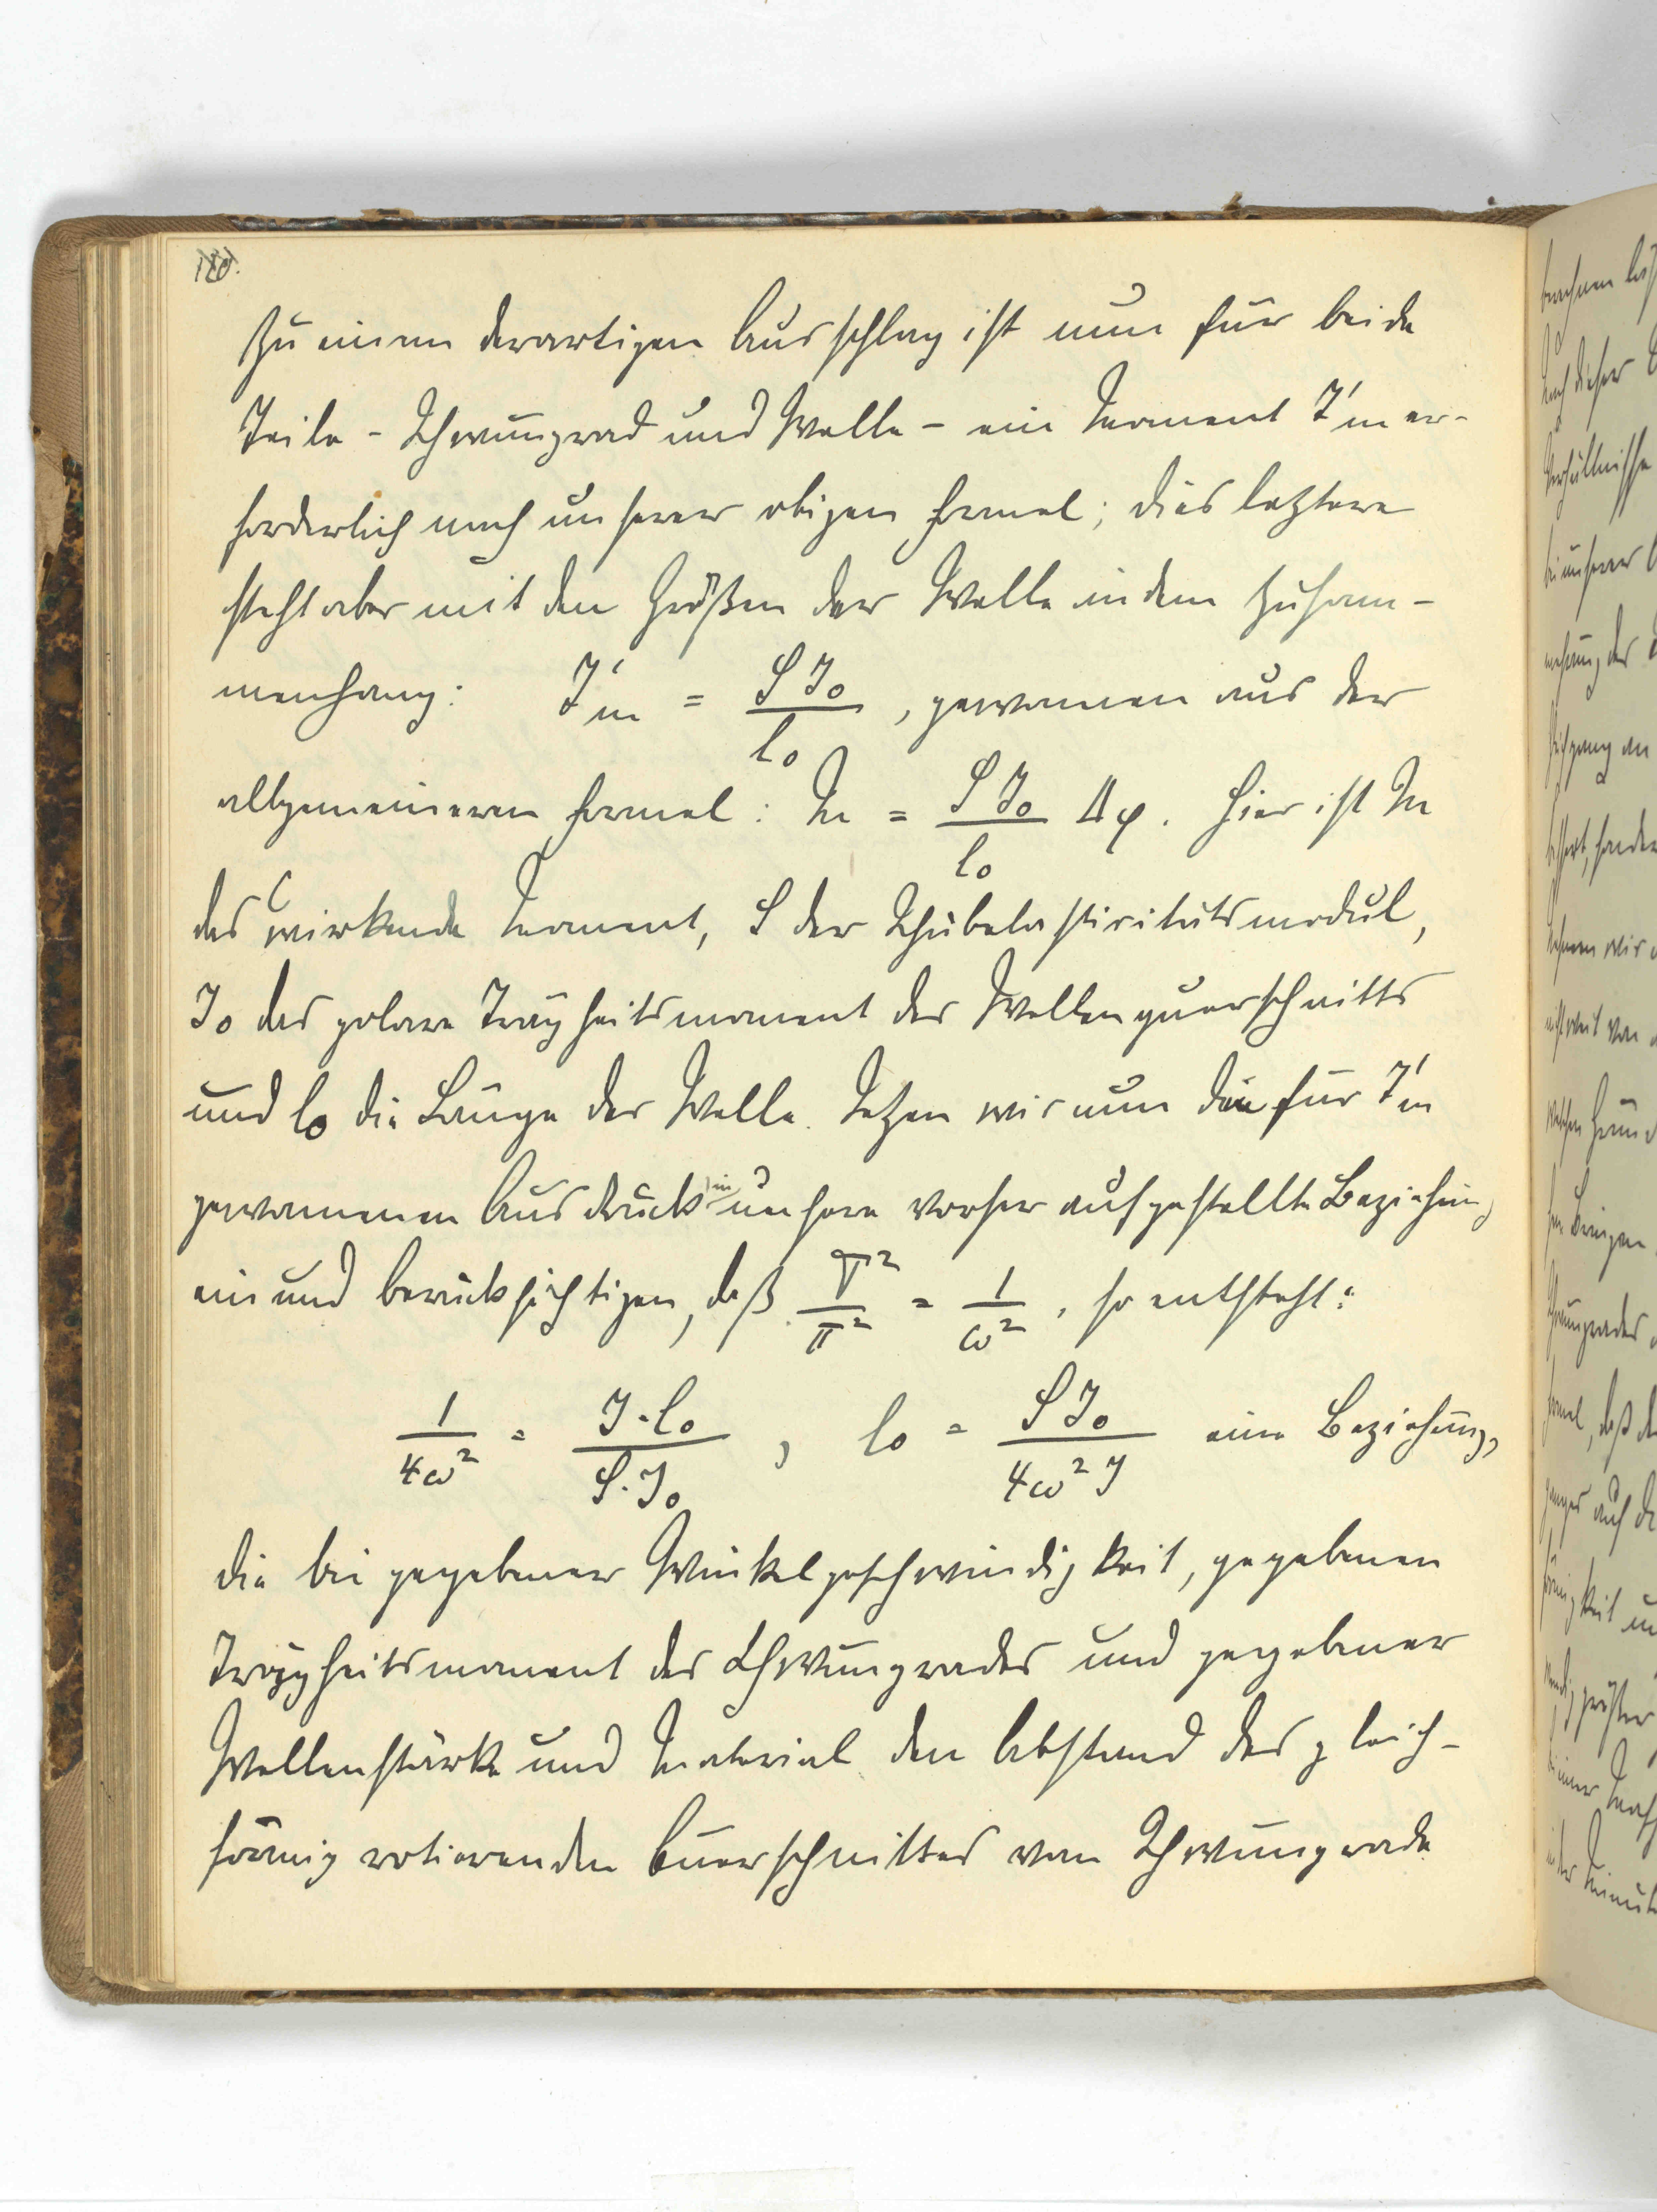 110.
Zu einem derartigen Ausschlag ist nun für beide
Teile - Schwungrad und Welle - ein Moment I'm er-
forderlich nach unserer obigen Formel; dies letztere
steht aber mit den Größen der Welle in dem Zusam-
menhang: I'm = S J₀ / l₀ , gewonnen aus der
allgemeineren Formel: M = S J₀ / l₀ Δφ. Hier ist M
das wirkende Moment, S der Schubelastizitätsmodul,
J₀ das polare Trägheitsmoment des Wellenquerschnitts
und l₀ die Länge der Welle. Setzen wir nun den für I'm
gewonnenen Ausdruck in unsere vorher aufgestellte Beziehung
ein und berücksichtigen, daß T² / π² = 1 / ω² , so entsteht:
1 / 4ω² = J·l₀ / S·J₀ , l₀ = S J₀ / 4ω² J eine Beziehung,
die bei gegebener Winkelgeschwindigkeit, gegebenen
Trägheitsmoment des Schwungrades und gegebener
Wellenstärke und Material den Abstand des gleich-
förmig rotierenden Querschnittes vom Schwungrade